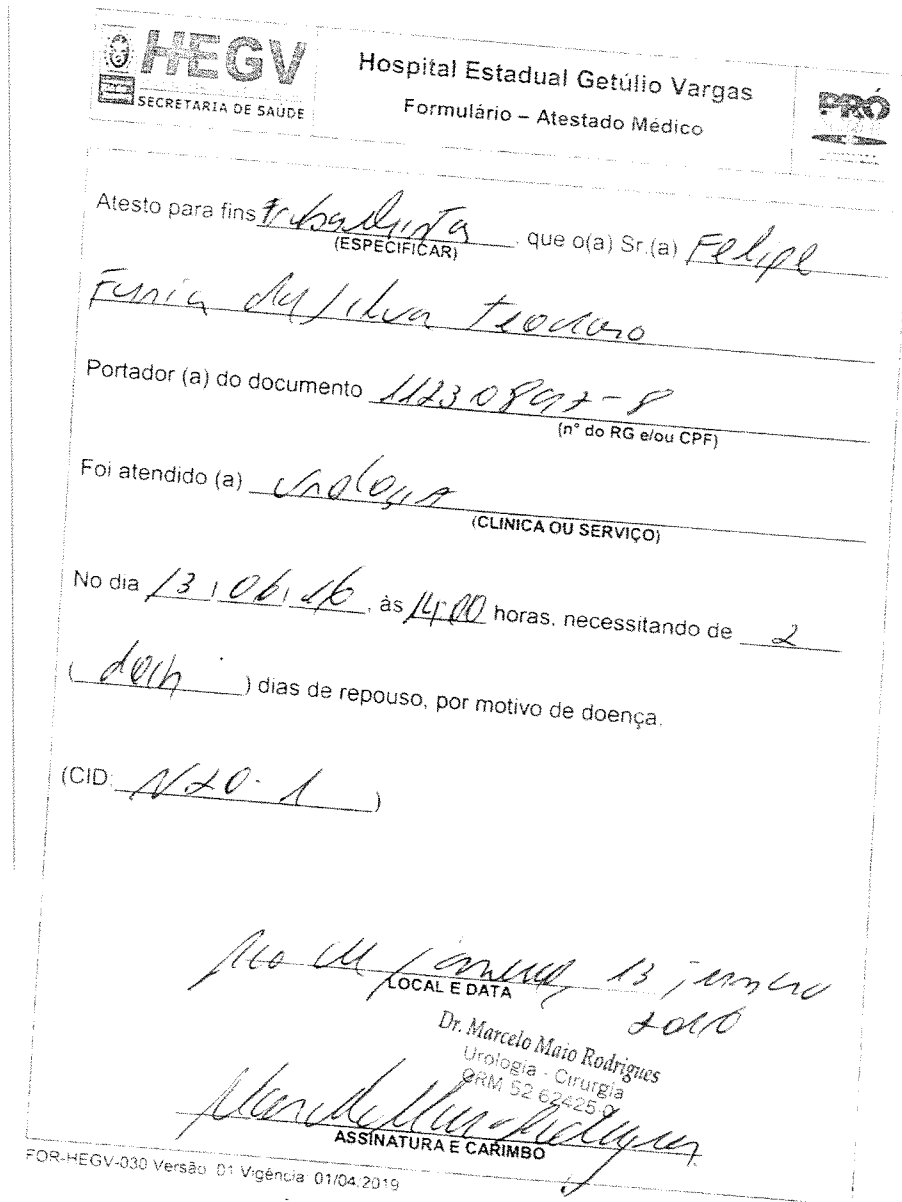 HEGV
SECRETARIA DE SAÚDE
Hospital Estadual Getúlio Vargas
Formulário – Atestado Médico
PRÓ
Atesto para fins trabalhista, que o(a) Sr.(a) Felipe
(ESPECIFICAR)
da Silva Teodoro
Portador (a) do documento
(nº do RG e/ou CPF)
Foi atendido (a) urologia
(CLINICA OU SERVIÇO)
No dia 13, 06, às 14:00 horas, necessitando de 2
( dois ) dias de repouso, por motivo de doença.
(CID: N20.1 )
Rio de Janeiro, 13
LOCAL E DATA
Dr. Marcelo Maio Rodrigues
Urologia - Cirurgia
CRM 52 62425-9
ASSINATURA E CARIMBO
FOR-HEGV-030 Versão 01 Vigência 01/04/2019